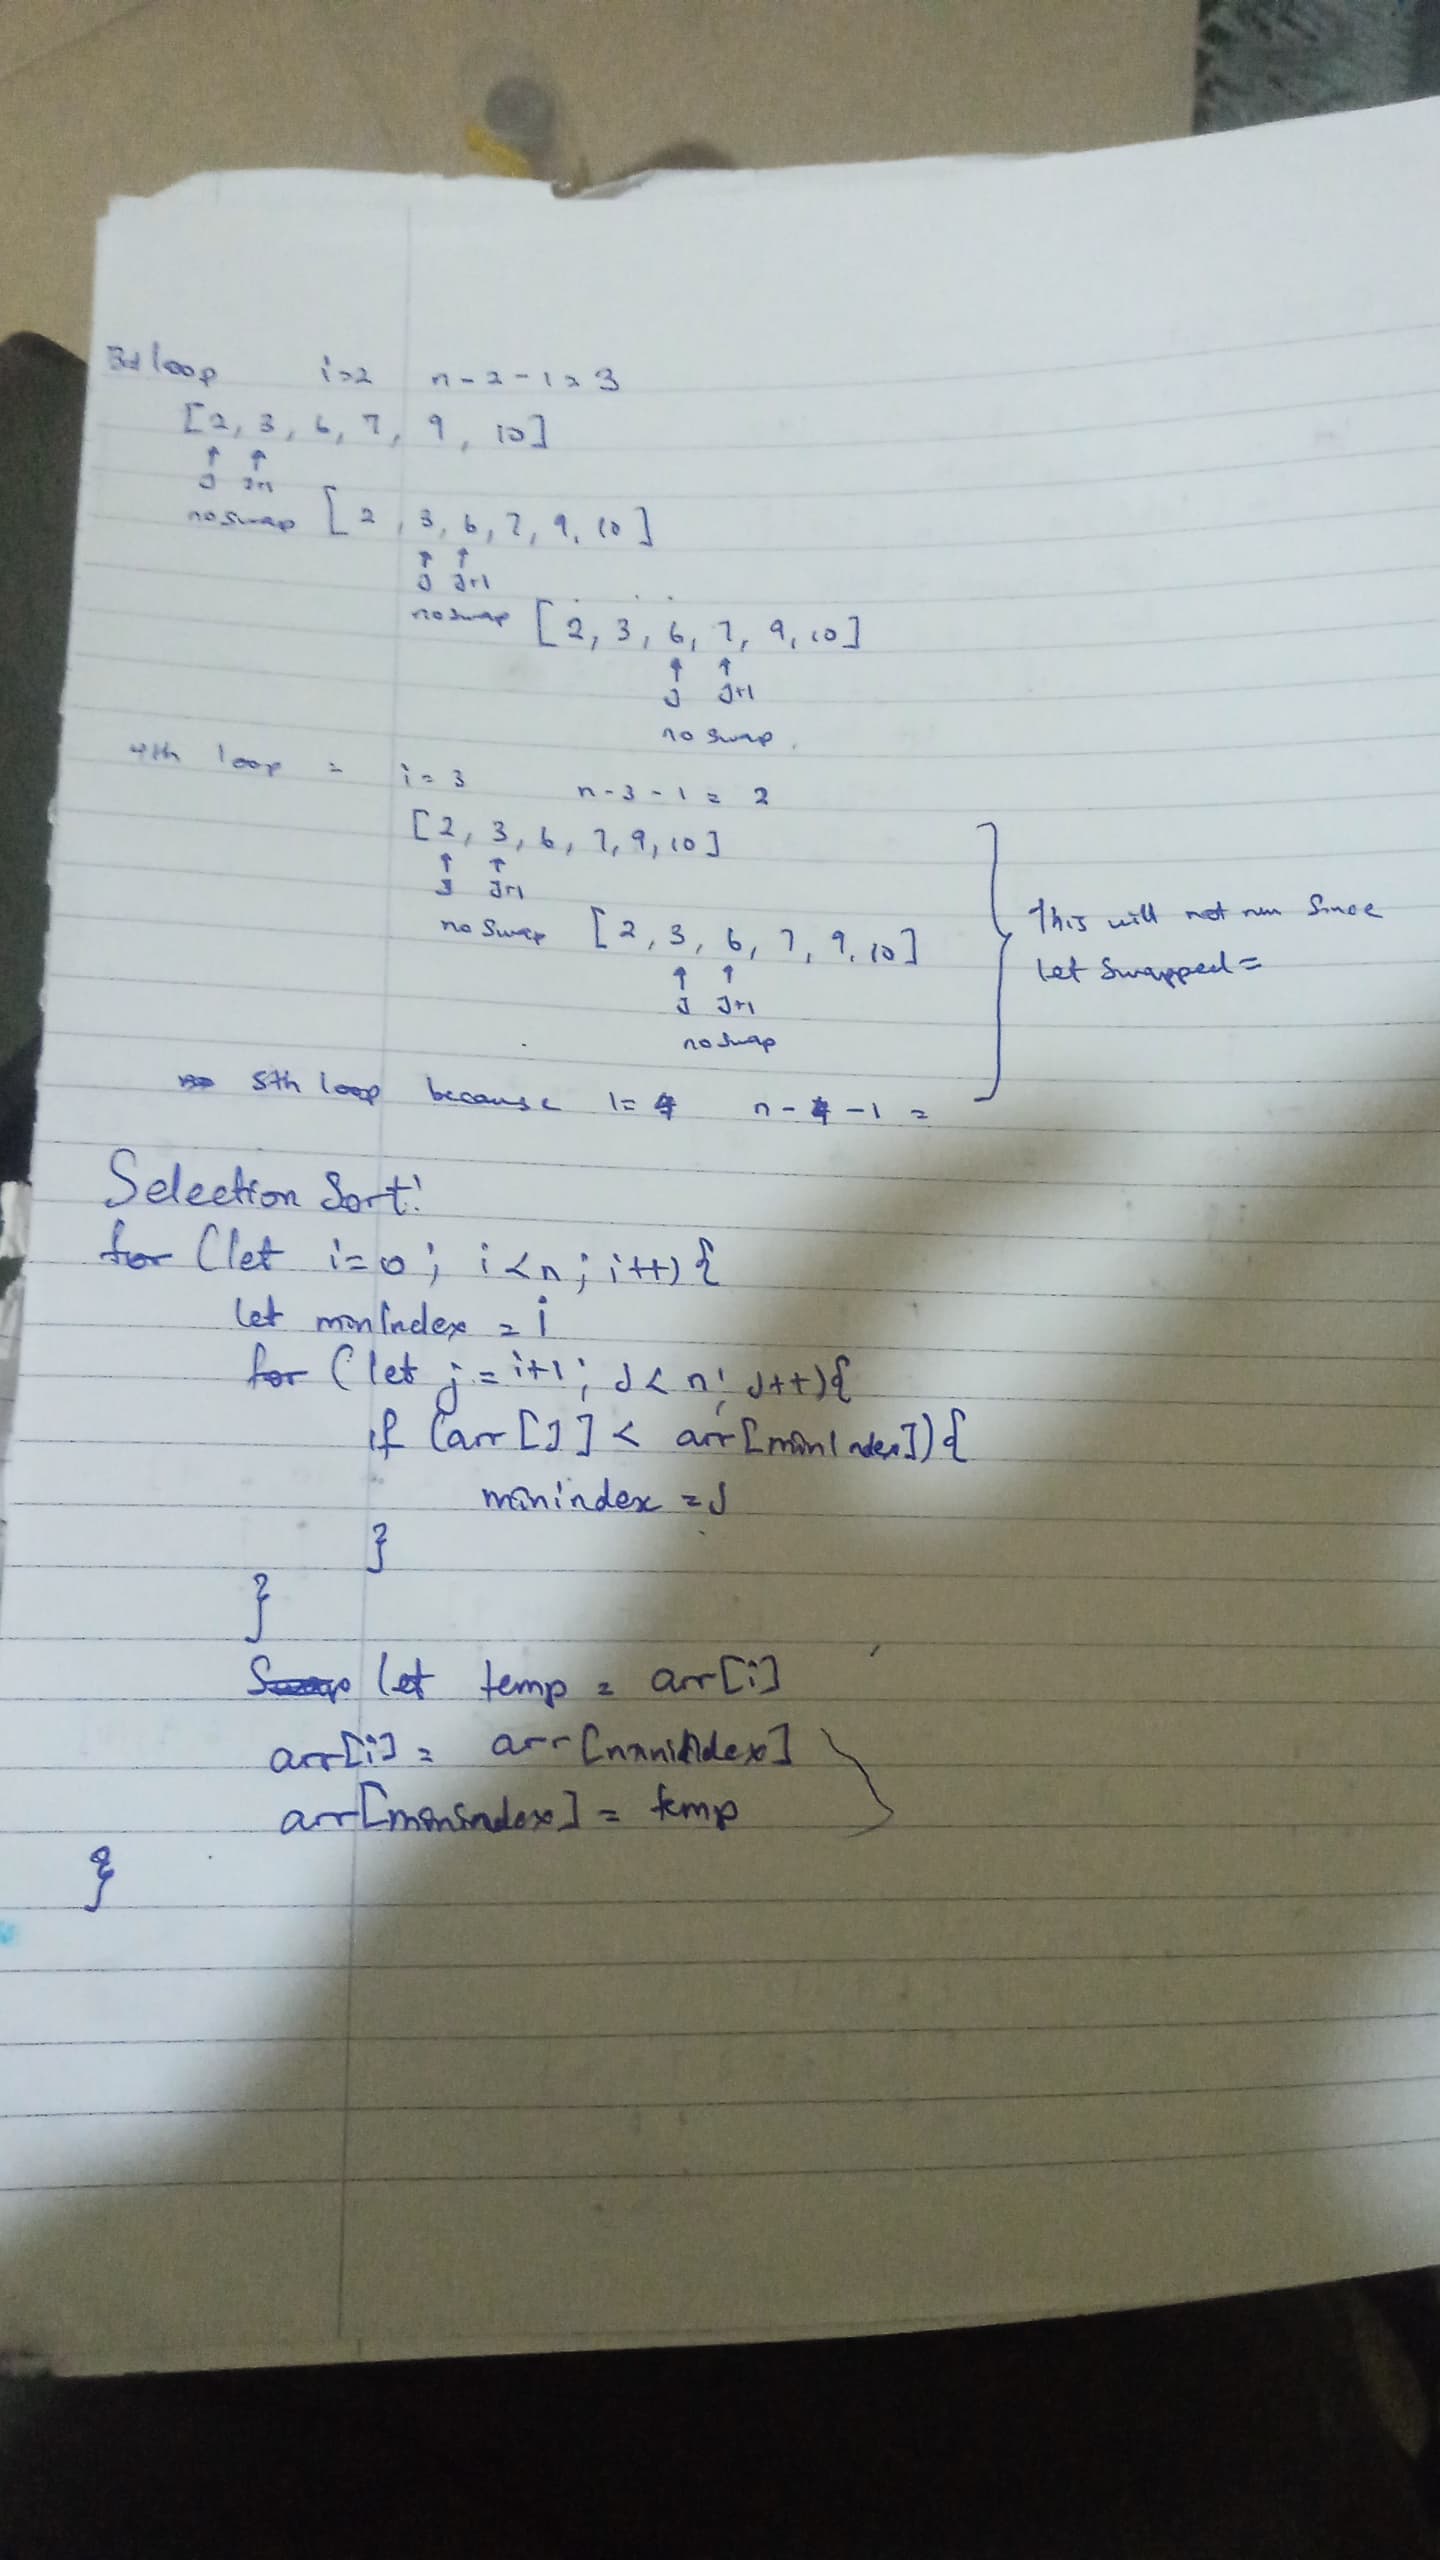 3rd loop i=2 n-2-1=3
[2, 3, 6, 7, 9, 10]
↑ ↑
J J+1
no swap [2, 3, 6, 7, 9, 10]
↑ ↑
J J+1
no swap [2, 3, 6, 7, 9, 10]
↑ ↑
J J+1
no swap
4th loop = i=3 n-3-1=2
[2, 3, 6, 7, 9, 10]
↑ ↑
J J+1
no swap [2, 3, 6, 7, 9, 10]
↑ ↑
J J+1
no swap
This will not run since
let swapped=
5th loop because i=4 n-4-1=
Selection Sort:
for (let i=0; i<n; i++){
let minIndex = i
for (let j=i+1; J<n; J++){
if (arr[J] < arr[minIndex]){
minindex = J
}
}
let temp = arr[i]
arr[i] = arr[minindex]
arr[minindex] = temp
}